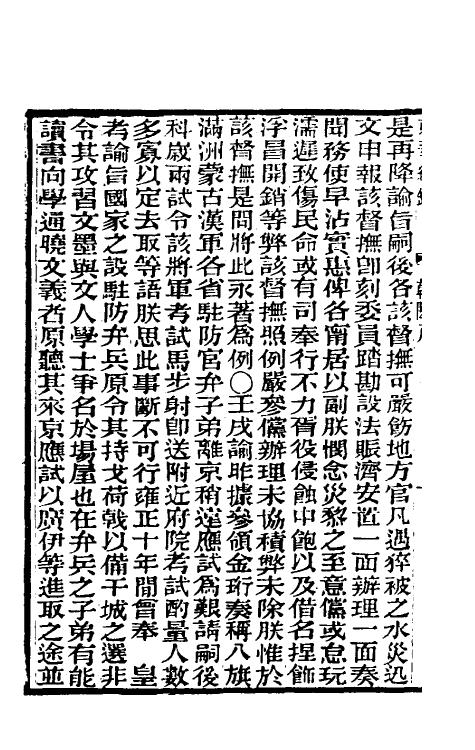 是再降諭旨嗣後各該督撫可嚴飭地方官凡遇猝被之水災迅
文申報該督撫卽刻委員踏勘設法賬濟安置一面辦理一面奏
聞務使早沾實惠俾各甯居以副朕憫念災黎之至意儻或怠玩
濡遲致傷民命或有司奉行不力胥役侵蝕中飽以及借名捏飾
浮冒開銷等弊該督撫照例嚴參儻辦理未協積弊未除朕惟於
該督撫是問將此永著爲例〇壬戌諭昨據參領金珩奏稱八旗
滿洲蒙古漢軍各省駐防官弁子弟離京稍遠應試爲艱請嗣後
科歲兩試令該將軍考試馬步射卽送附近府院考試酌量人數
多寡以定去取等語朕思此事斷不可行雍正十年閒曾奉 皇
考諭旨國家之設駐防弁兵原令其持戈荷戟以備干城之選非
令其攻習文墨與文人學士爭名於場屋也在弁兵之子弟有能
讀書向學通曉文義者原聽其來京應試以廣伊等進取之途並